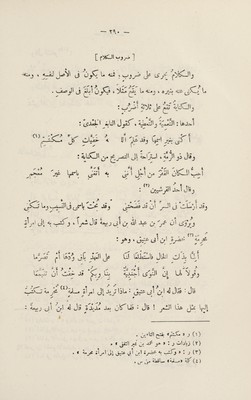 — ٢٩٠ —
[ ضروب الكلام ]
والكلامُ يجرى على ضروبٍ؛ فمنه ما يكونُ فى الأصل لنفسِه، ومنه
ما يُكنَى عنه بغيره، ومنه ما يقعُ مثلًا، فيكونُ أبلغَ فى الوصفِ.
والكنايةُ تقعُ على ثلاثةِ أضربٍ:
أحدها: التَّعْمِيَةُ والتَّغْطِيَةُ، كقولِ النابغةِ الجَعْدِىّ:
أَكْنِى بغيرِ اسمِها وقد عَلِمَ ٱلله خَفِيَّاتِ كلِّ مُكْتَتَمِ (١)
وقال ذو الرُّمَّةِ، استراحةً إلى التصريحِ من الكنايةِ:
أُحِبُّ المكانَ القَفْرَ من أجلِ أنَّنى به أَتَغَنَّى باسمِها غيرَ مُعْجِمِ
وقال أحدُ القرشيين (٢):
وقد أَرْسَلَتْ فى السرِّ أنْ قد فَضَحْتَنِى وقد بُحْتَ باسمى فى النَّسِيبِ وما تَكْنِى
ويُروَى أن عمر بن عبد الله بن أبى ربيعة قال شعرًا، وكتب به إلى امرأةٍ
مُحْرِمة (٣) بحضرة ابن أبى عتيق، وهو:
أَلِمَّا بذاتِ الخالِ فاستَطْلِعا لنا على العهدِ باقٍ وُدُّها أم تَصَرَّمَا
وقُولَا لها إنَّ النَّوَى أجنبيَّةٌ بنا وبكمْ قد خِفْتُ أنْ تَتَيَمَّمَا
قال: فقال له ابن أبى عتيق: ماذا تريدُ إلى امرأةٍ مسلمة (٤) مُحْرِمةٍ تكتبُ
إليها بمثل هذا الشعر! قال: فلما كان بعد مُدَيْدَة قال له ابن أبى ربيعة:
(١) ر: « مكتتم » بفتح التاءين.
(٣) ر: « وكتب به بحضرة ابن أبى عتيق إلى امرأة محرمة ».
(٤) كلمة « مسلمة » ساقطة من س.